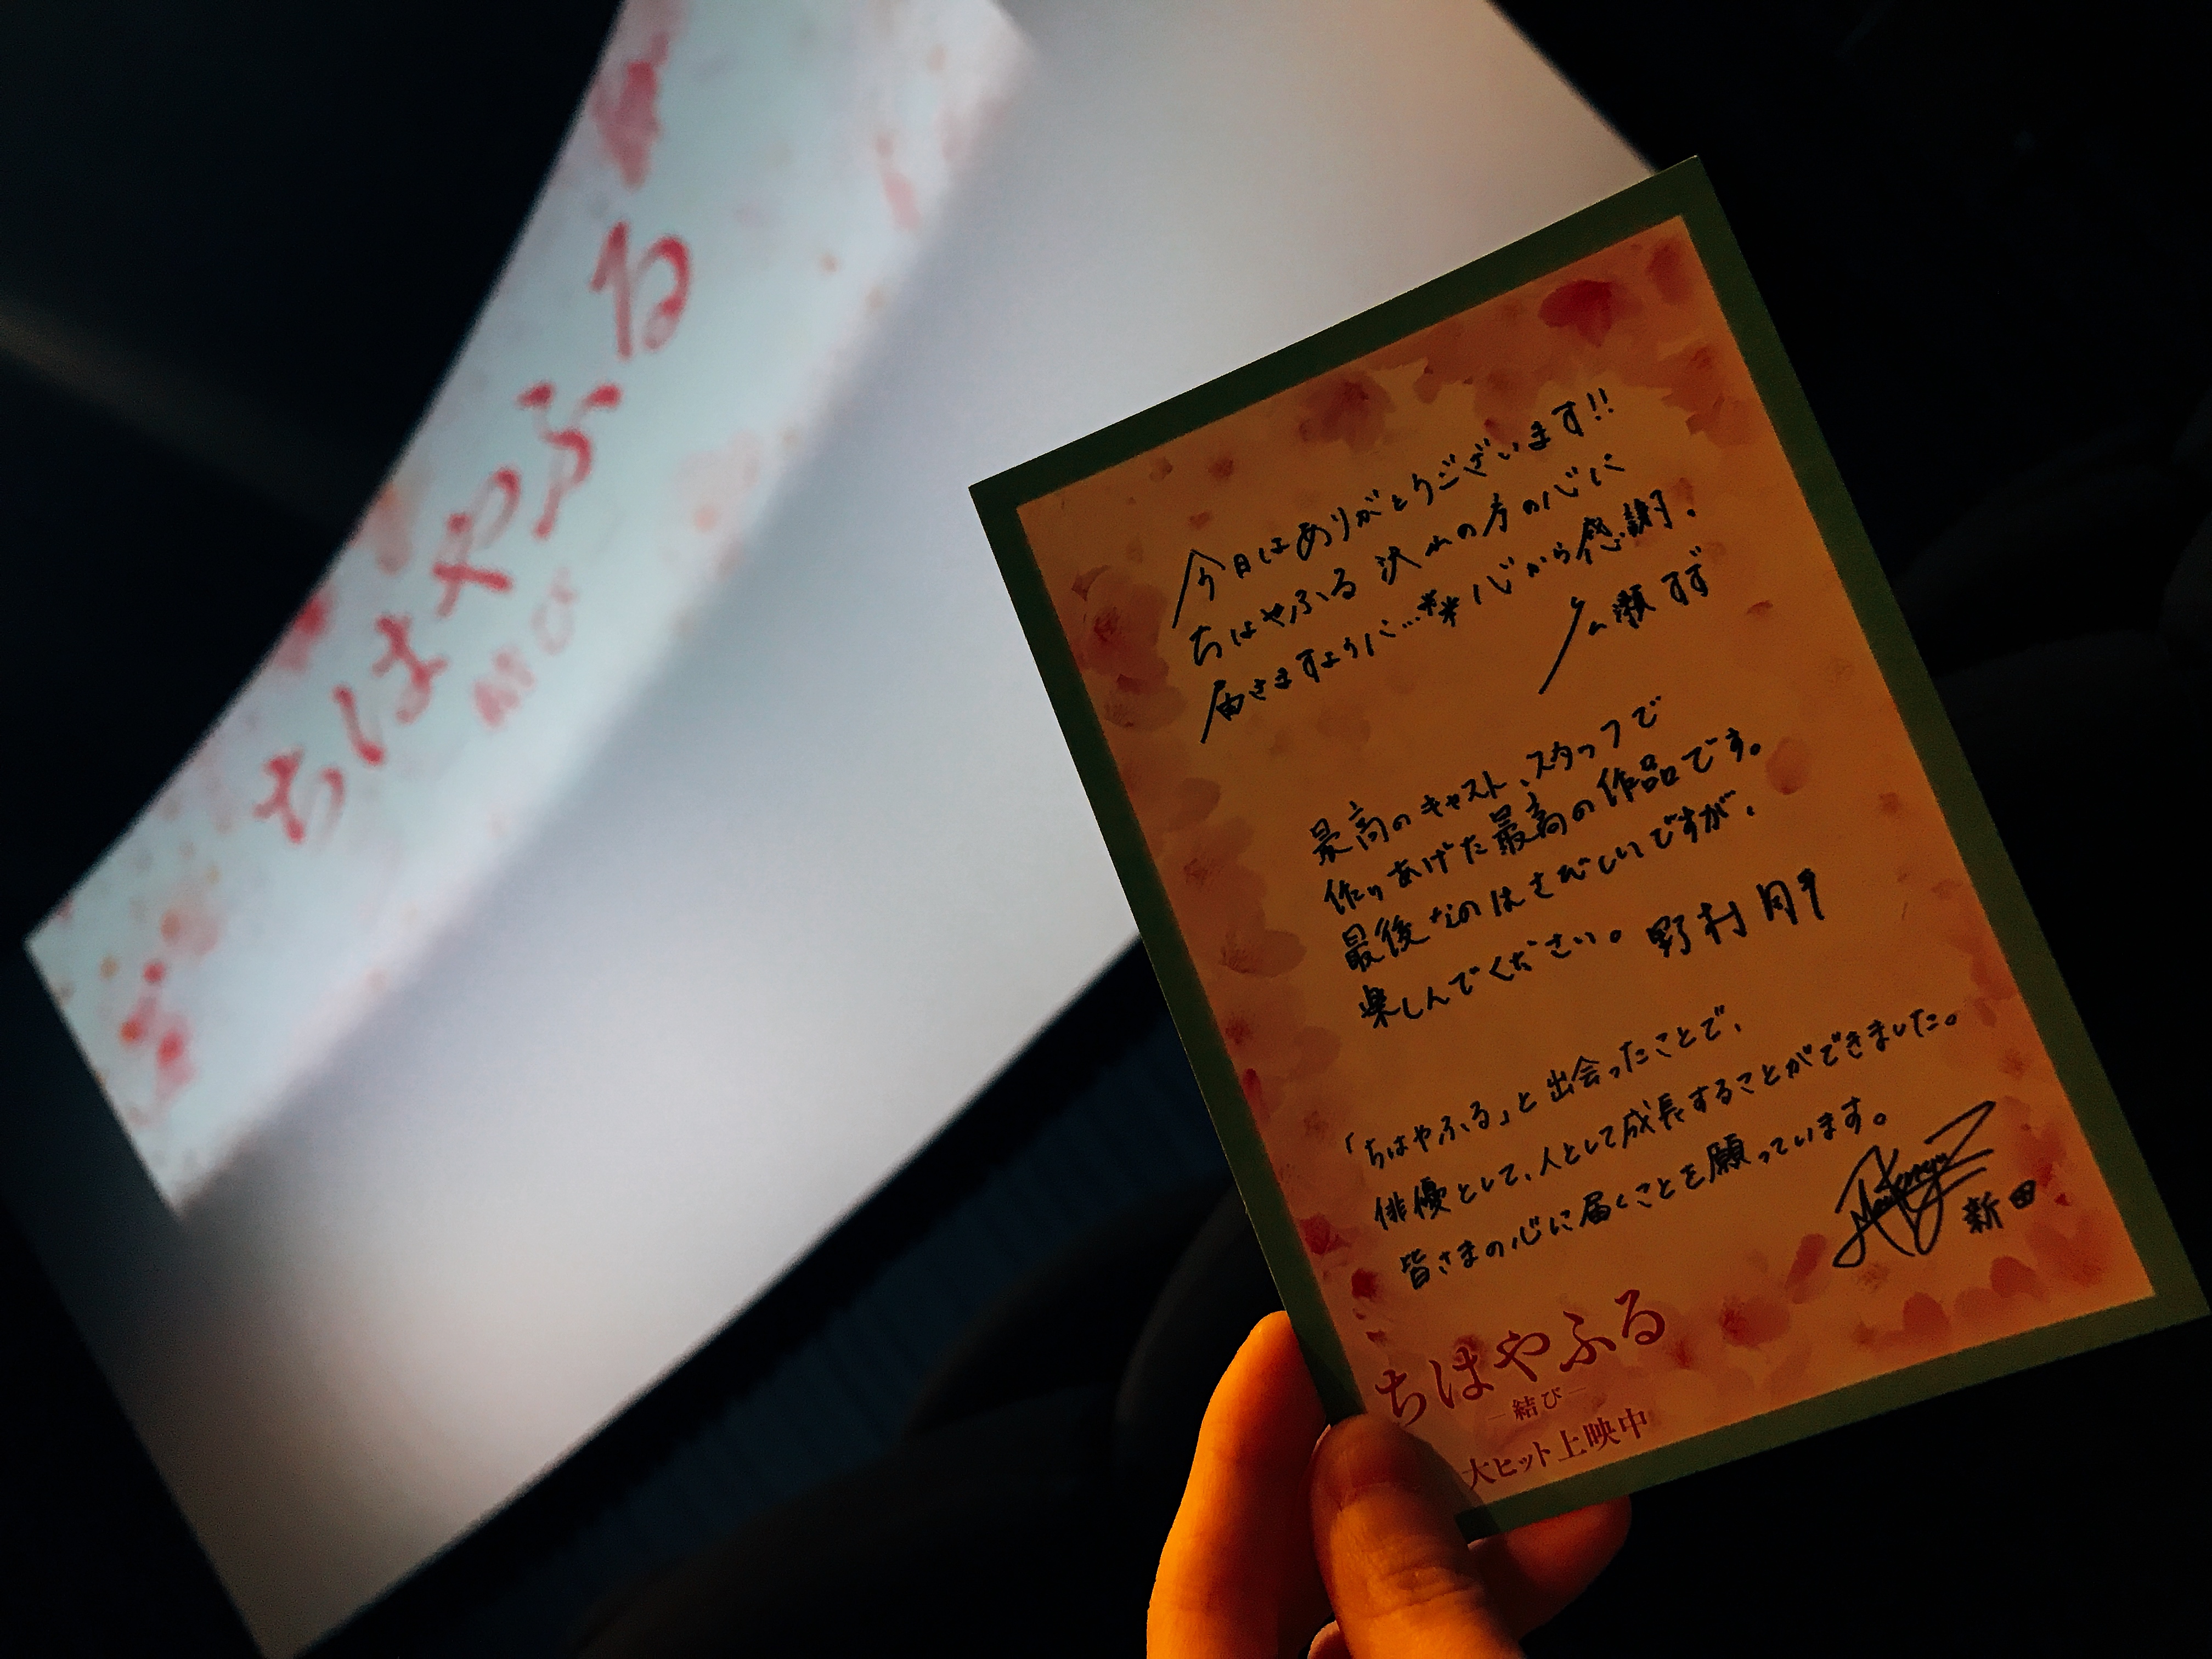 ちはやふる
今日はありがとうございます!!
ちはやふる 沢山の方の心に
届きますように…** 心から感謝!
広瀬すず
最高のキャスト、スタッフで
作りあげた最高の作品です。
最後なのはさびしいですが、
楽しんでください。 野村周平
「ちはやふる」と出会ったことで、
俳優として、人として成長することができました。
皆さまの心に届くことを願っています。
新田
ちはやふる
－結び－
大ヒット上映中